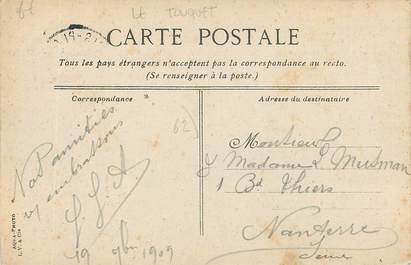 LE TOUQUET
CARTE POSTALE
Tous les pays étrangers n'acceptent pas la correspondance au recto.
(Se renseigner à la poste.)
Correspondance
Adresse du destinataire
62)
Nos amitiés
embrassons
19 9bre 1909
Monsieur
& Madame L Meusman
1 Bd Thiers
Nanterre
Seine
AQUA-PHOTO
L.V. & Cie